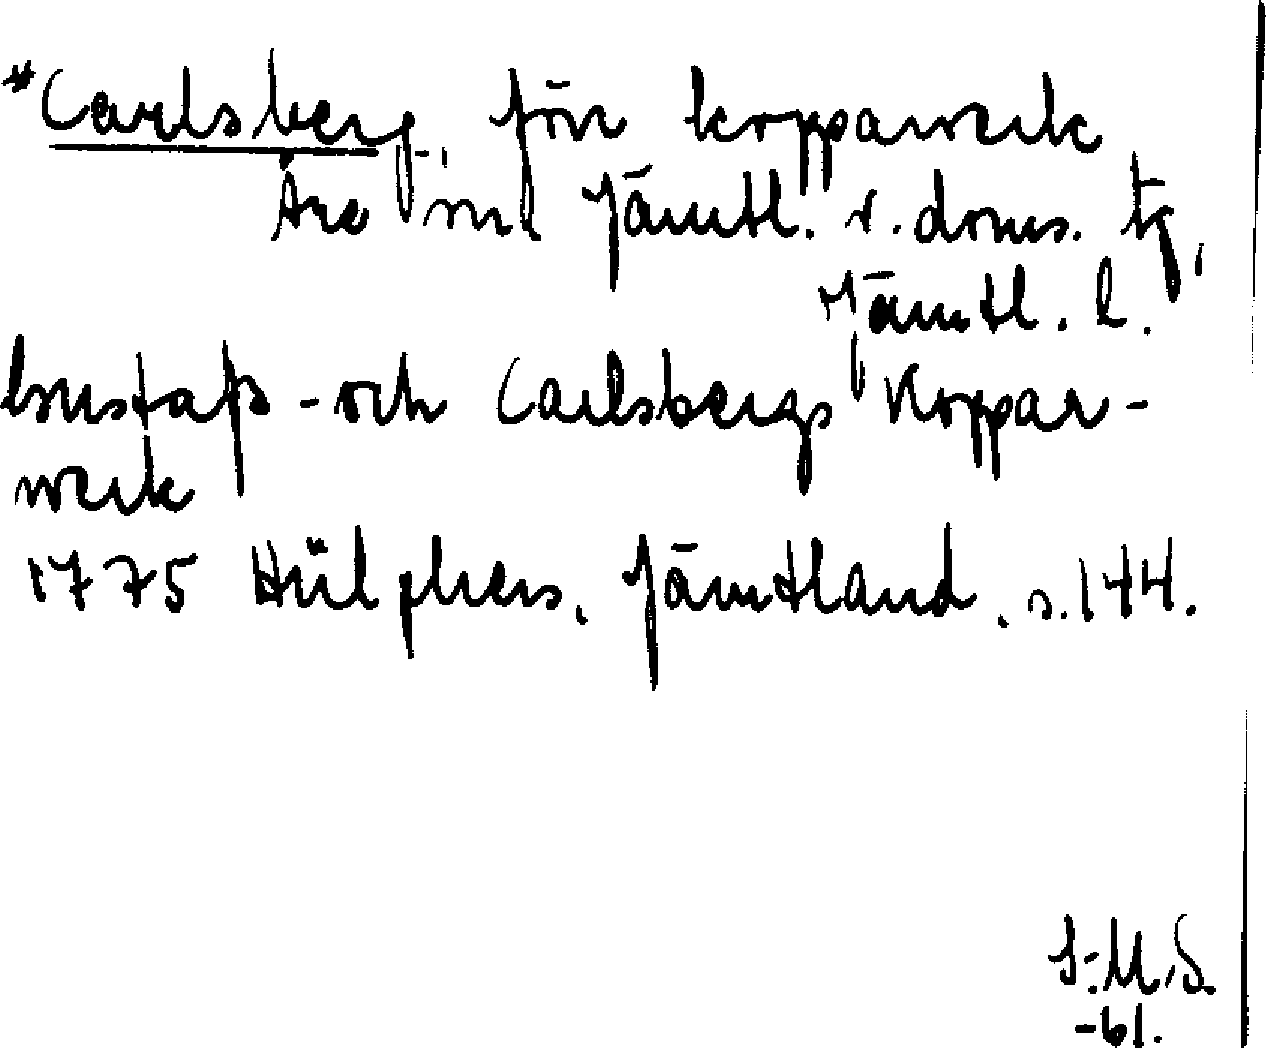 *Carlsberg, förr kopparverk
Åre snd Jämtl. v. doms. tg,
Jämtl. l.
Gustafs- och Carlsbergs Koppar-
werk
1775 Hülphers, Jämtland, s. 144.
S:M.S.
-61.